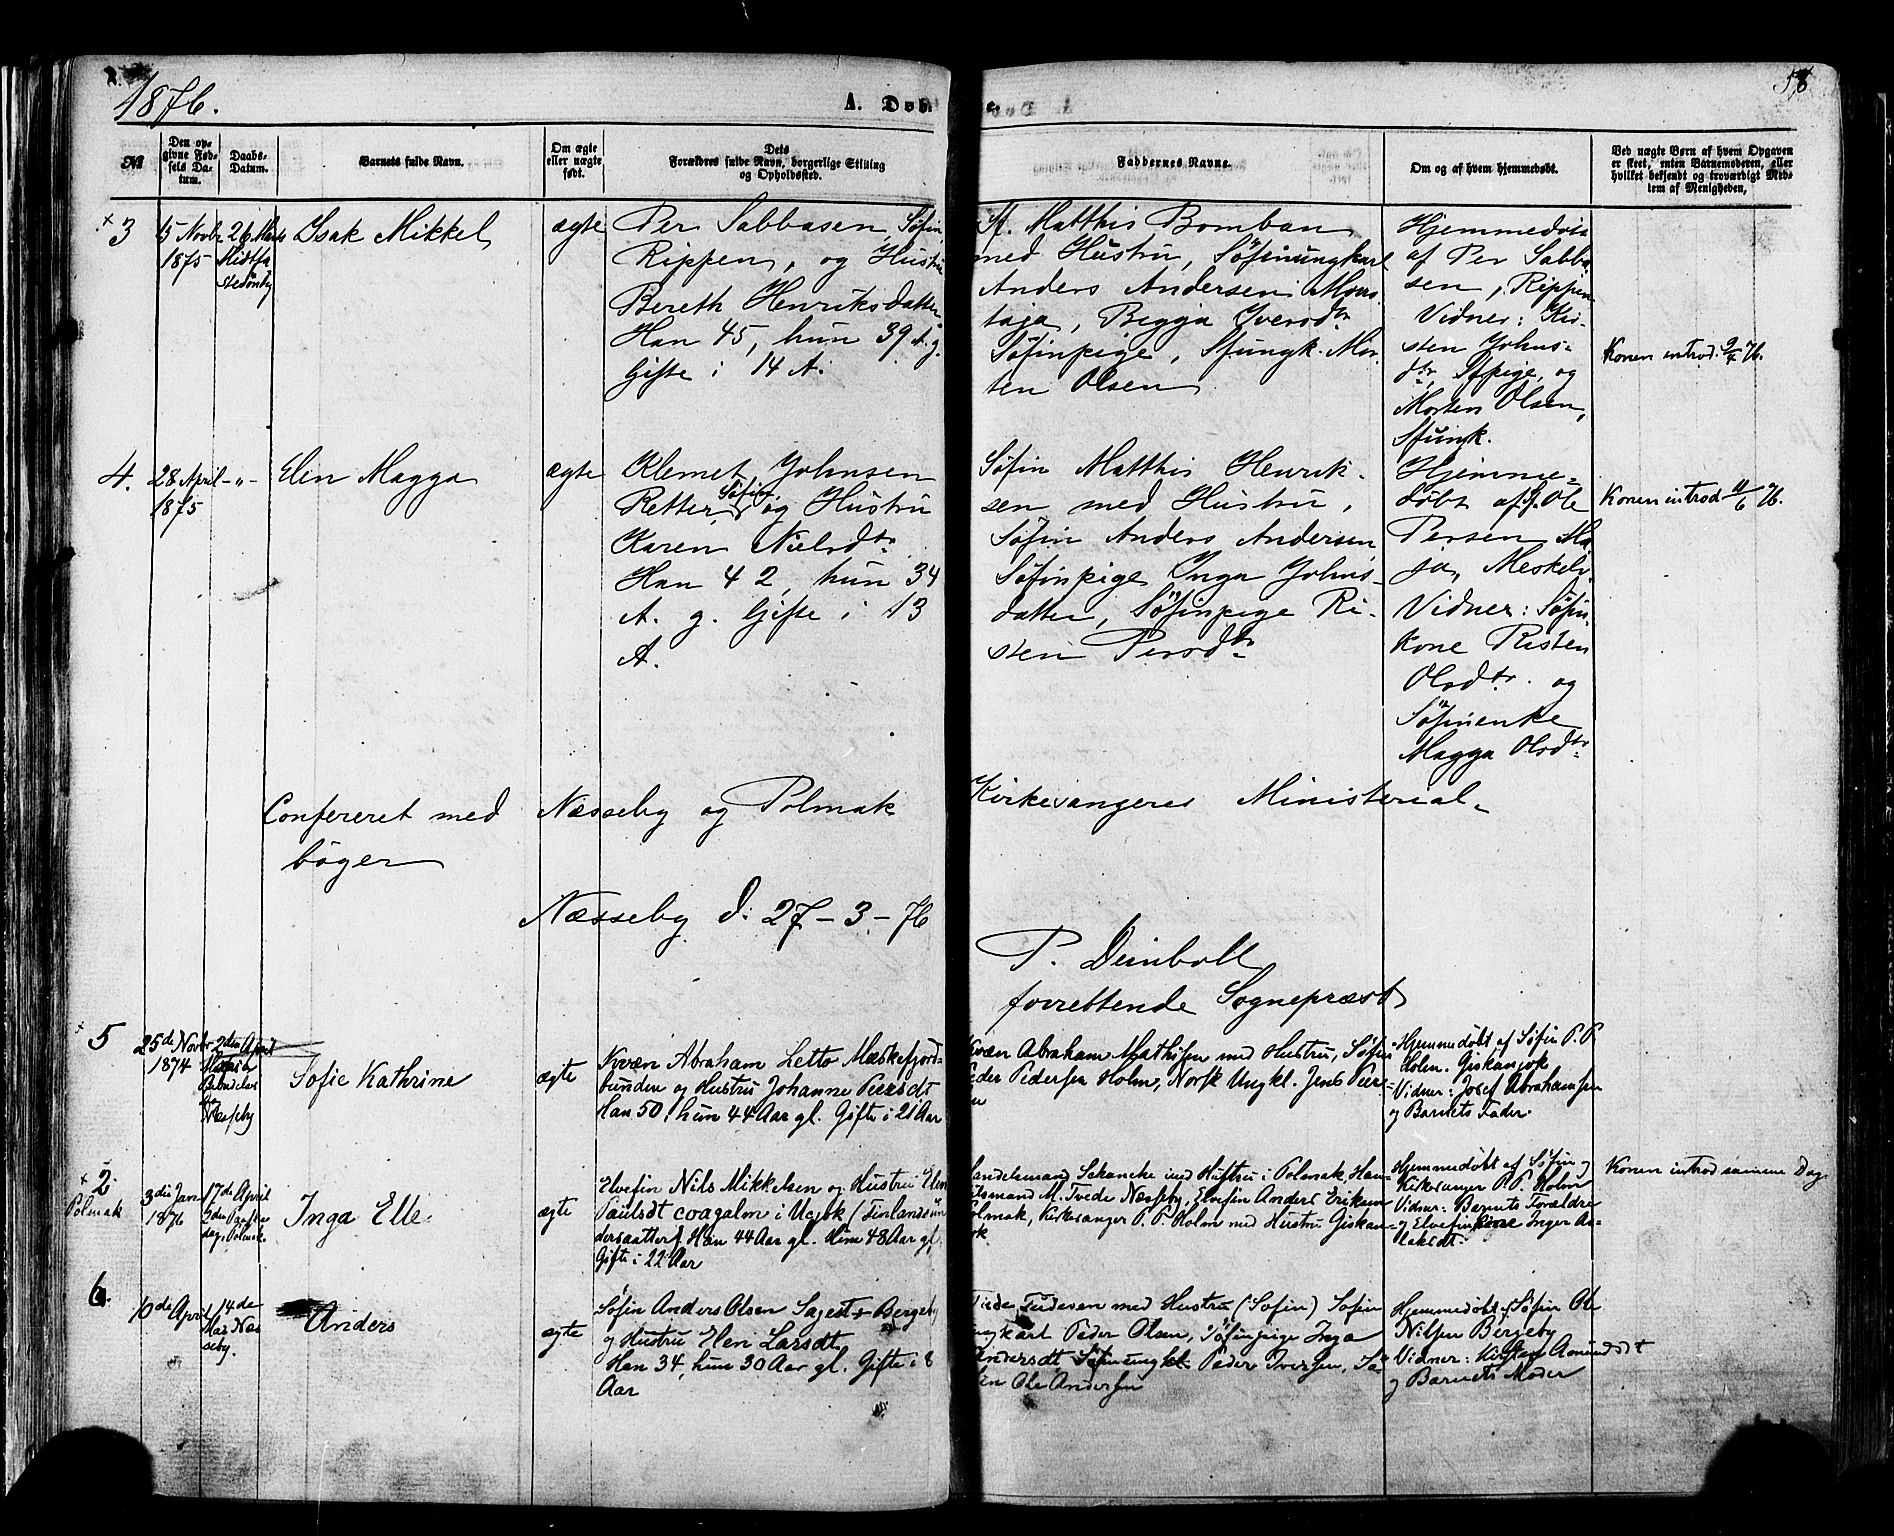 1876.
A. Døb
58
№
Den op-
givne Fød-
sels Da-
tum.
Daabs-
Datum.
Barnets fulde Navn.
Om ægte
eller uægte
født.
Dets
Forældres fulde Navn, borgerlige Stilling
og Opholdssted.
Faddernes Navne.
Om og af hvem hjemmedøbt.
Ved uægte Børn af hvem Opgaven
er skeet, enten Barnemoderen, eller
hvilket bekjendt og troværdigt Med-
lem af Menigheden.
3
15 Novbr
1875
26 Marts
Isak Mikkel
ægte
Per Sabbasen, Søfin,
Rippen, og Hustru
Bereth Henriksdatter
Han 45, hun 39 A. g.
Gifte i 14 A.
Sf. Matthis Bomban
med Hustru, Søfinungkarl
Anders Andersen Mous
taja, Begga Iversdtr
Søfinpige, Sfungk. Mor-
ten Olsen
Hjemmedøbt
af Per Sabba
sen, Rippen
Vidner: Kir-
sten Johns-
dtr, Sfpige, og
Morten Olsen,
Sfungk.
Konen introd. 9/4 76.
4.
28 April
1875
- " -
Elen Magga
ægte
Klemet Johnsen
Retter, Søfin, og Hustru
Karen Nielsdtr
Han 42, hun 34
A. g. Gifte i 13
A.
Søfin Matthis Henrik-
sen med Hustru,
Søfin Anders Andersen
Søfinpige Inga Johns-
datter, Søfinpige Ri-
sten Persdtr
Hjemme-
døbt af Sf. Ole
Persen Ma
ja, Meskelv.
Vidner: Søfin
kone Risten
Olsdtr. og
Søfinenke
Magga Olsdtr
Konen introd 11/6 76.
Confereret med Næsseby og Polmak Kirkesangeres Ministerial-
bøger
Næsseby d: 27-3-76
P. Deinboll
forrettende Sognepræst
5
25de Novbr
1874
2den April
Næsseby
Sofie Kathrine
ægte
Kvæn Abraham Letto Mæskefjord-
bunden og Hustru Johanne Piersdt
Han 50, hun 44 Aar gl. Gifte i 21 Aar
Kvæn Abraham Mathisen med Hustru, Søfin
Peder Pedersen Holm, Norsk Ungkl. Jens Peter-
Hjemmedøbt af Søfin P. P.
Holm. Giskanjok
Vidner: Josef Abrahamsen
og Barnets Fader.
2
Polmak
3die Jan
1876
17de April
2den Paaske
dag. Polmak.
Inga Elle.
ægte
Elvefin Nils Mikkelsen og Hustru Elen
Paulsdt coagalm i Ucjok (Finlandsun
dersaatter) Han 44 Aar gl. Hun 48 Aar gl.
Gifte i 22 Aar
Handelsmand Schancke med Hustru i Polmak, Han-
delsmand M. Tvede Næsseby, Elvefin Anders Eriksen
Polmak, Kirkesanger P. P. Holm med Hustru Giskan-
jok
Hjemmedøbt af Søfin og
Kirkesanger P. P. Holm
Vidner: Barnets Forældre
og Elvefinpige Inger As-
laksdt.
Konen introd samme Dag
6.
10de April
14de
Mai Næs
seby.
Anders
ægte
Søfin Anders Olsen Sagest Bergeby
og Hustru Elen Larsdt
Han 34, hun 30 Aar gl. Gifte i 8
Aar
med Hustru (Søfin) Søfin
ungkarl Peder Olsen, Søfinpige Inga
Andersdt Søfinungkl. Peder Iversen, Sø-
fin Ole Andersen
Hjemmedøbt af Søfin Ole
Nilsen Bergeby
Vidner: Kirsten Amundsdt
og Barnets Moder